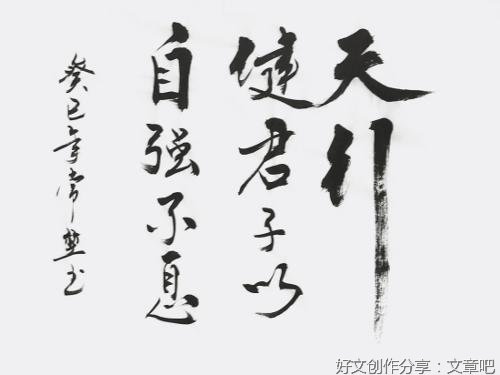 天行
健君子以
自强不息
癸巳年常楚书
好文创作分享：文章吧